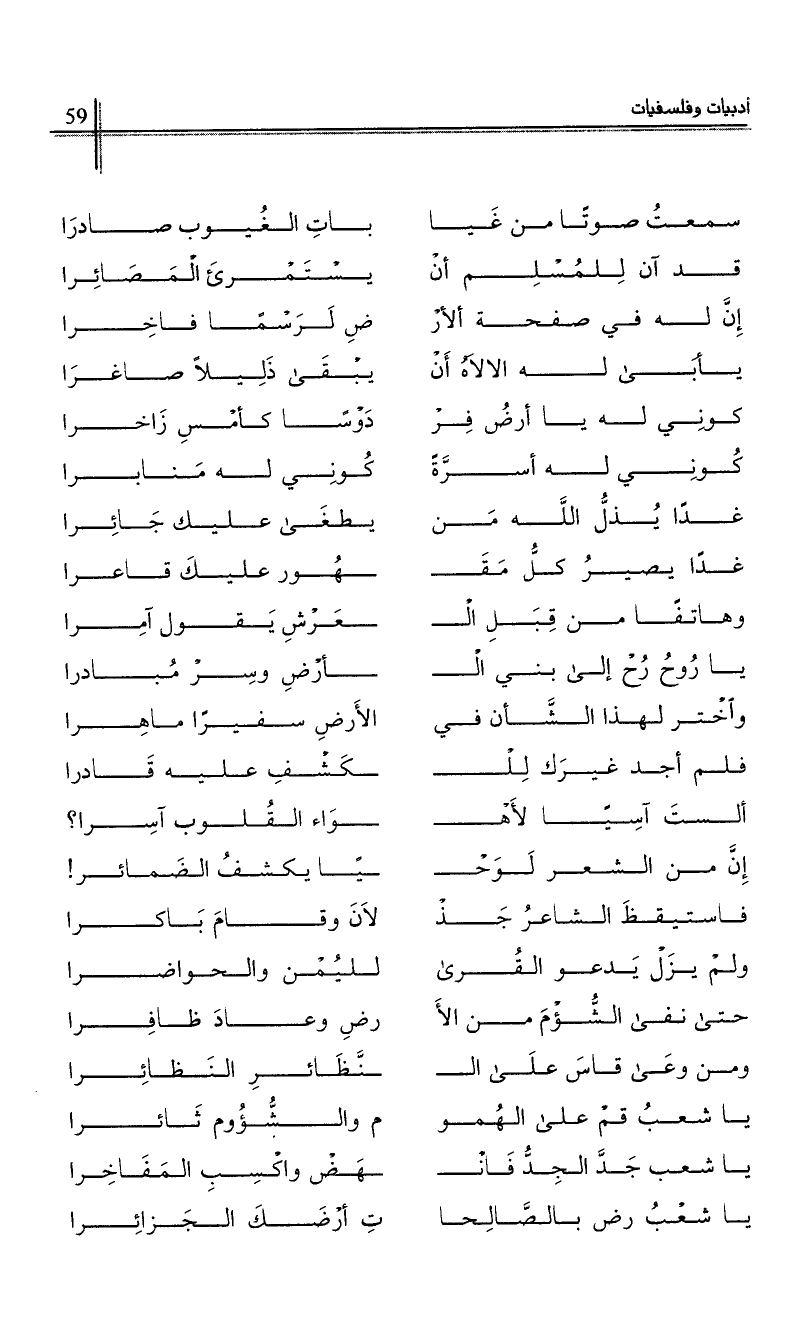 أدبيات وفلسفيات
59
سمعتُ صوتًا من غَيا باتِ الغُيوب صادرَا
قد آن لِلمُسْلِم أنْ يسْتَمْرئَ الْمَصَائِرا
إنَّ له في صفحة ألأرْ ضِ لَرَسْمًا فاخِرا
يأبَى له الالاهُ أَنْ يبْقَى ذَلِيلاً صاغرَا
كوني له يا أرضُ فِرْ دَوْسًا كأمْسِ زَاخرا
كُونِي له أسرَّةً كُونِي له مَنابرا
غدًا يُذلُّ اللَّه مَن يطغَى عليك جَائِرا
غدًا يصيرُ كلُّ مَقَـ ـهُور عليكَ قاعرا
وهاتفًا من قِبَلِ الْـ ـعَرْشِ يَقول آمِرا
يا رُوحُ رُحْ إلى بني الْـ ـأرْضِ وسِرْ مُبادرا
وٱخْتر لهذا الشَّأن في الأرضِ سفيرًا ماهِرا
فلم أجد غيرَك لِلْـ ـكَشْفِ عليه قَادرا
ألستَ آسِيًا لأهْـ ـوَاء القُلوب آسِرا؟
إنَّ من الشعر لَوَحْـ ـيًا يكشفُ الضَمائر!
فاستيقظَ الشاعرُ جَذْ لاَنَ وقامَ بَاكرا
ولمْ يزَلْ يَدعو القُرى لليُمْن والحواضرا
حتى نفى الشُّؤْمَ من الأَ رضِ وعادَ ظافِرا
ومن وعَى قاسَ علَى الـ ـنَّظَائرِ النَظائِرا
يا شعبُ قمْ على الهُمو م والشُّؤُوم ثَائرا
يا شعب جَدَّ الجِدُّ فَانْـ ـهَضْ واكْسِبِ المَفَاخِرا
يا شعْبُ رض بالصَّالِحا تِ أرْضَكَ الجَزائِرا